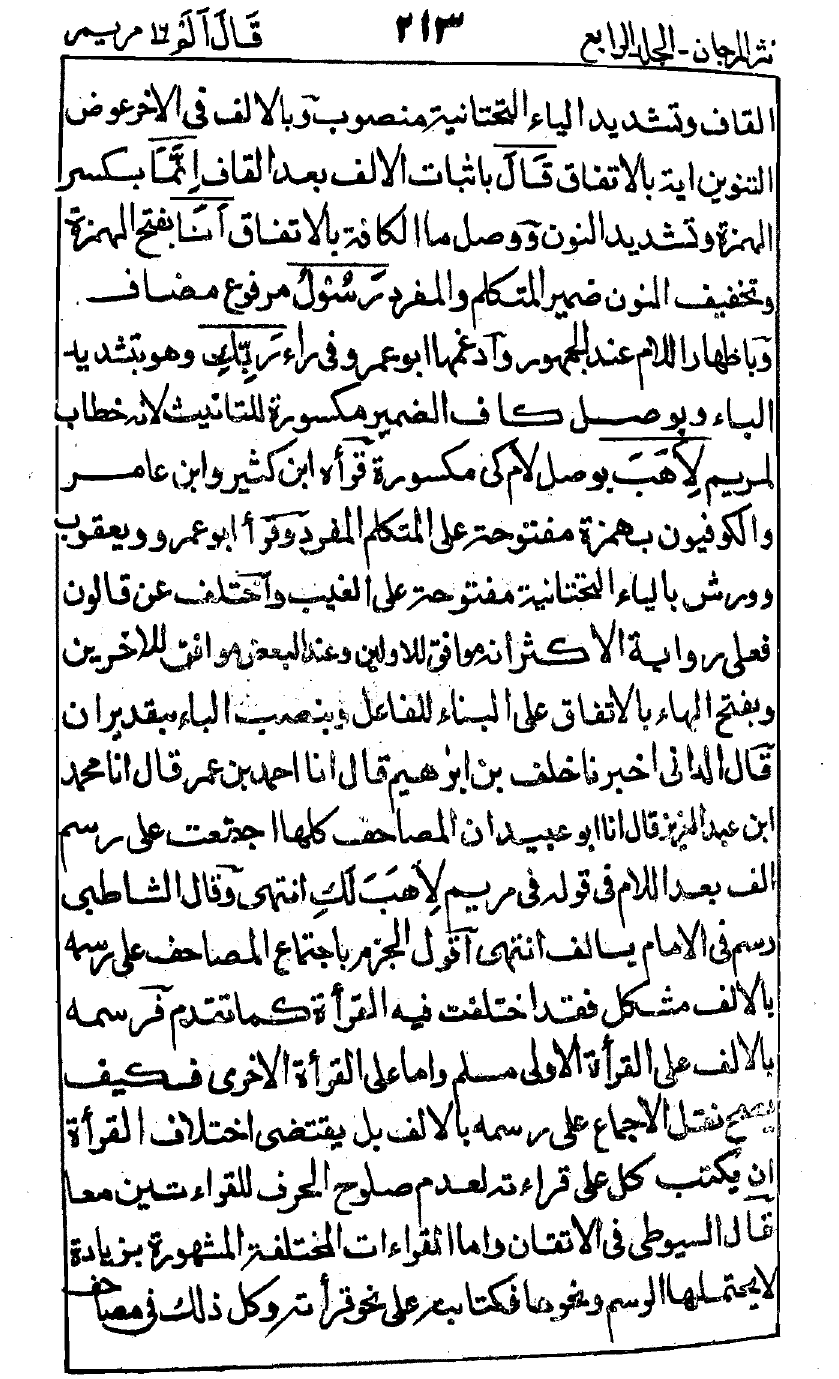 نثر المرجان - المجلد الرابع ٢١٣ قَالَ اَلَمْ ١٦ مريم
القاف وتشديد الياء التحتانية منصوب وبالالف فى الاخر عوض
التنوين اية بالاتفاق قَالَ باثبات الالف بعد القاف اِنَّمَا بكسر
الهمزة وتشديد النون ووصل ما الكافة بالاتفاق اَنَا بفتح الهمزة
وتخفيف النون ضمير المتكلم والمفرد رَسُوْلُ مرفوع مضاف
وباظهار اللام عند الجمهور وادغمها ابو عمرو فى راء رَبِّكِ وهو بتشديد
الباء وبوصل كاف الضمير مكسورة للتانيث لانه خطاب
لمريم لِاَهَبَ بوصل لام كى مكسورة قرأه ابن كثير وابن عامر
والكوفيون بهمزة مفتوحة على المتكلم المفرد وقرأ ابو عمرو ويعقوب
وورش بالياء التحتانية مفتوحة على الغيب واختلف عن قالون
فعلى رواية الاكثر انه موافق للاولين وعند البعض موافق للاخرين
وبفتح الهاء بالاتفاق على البناء للفاعل وبنصب الباء بتقدير ان
قال الدانى اخبرنا خلف بن ابرٰهيم قال انا احمد بن عمر قال انا محمد
ابن عبد العزيز قال انا ابو عبيد ان المصاحف كلها اجتمعت على رسم
الف بعد اللام فى قوله فى مريم لِاَهَبَ لَكِ انتهى وقال الشاطبى
رسم فى الامام بالف انتهى اقول الجزم باجتماع المصاحف على رسمه
بالالف مشكل فقد اختلفت فيه القرأة كما تقدم فرسمه
بالالف على القرأة الاولى مسلم واما على القرأة الاخرى فكيف
يصح نقل الاجماع على رسمه بالالف بل يقتضى اختلاف القرأة
ان يكتب كل على قراءته لعدم صلوح الحرف للقراءتين معا
قال السيوطى فى الاتقان واما القراءات المختلفة المشهورة بزيادة
لا يحتملها الرسم ونحوها فكتابته على نحو قرأته وكل ذلك فى مصاحف